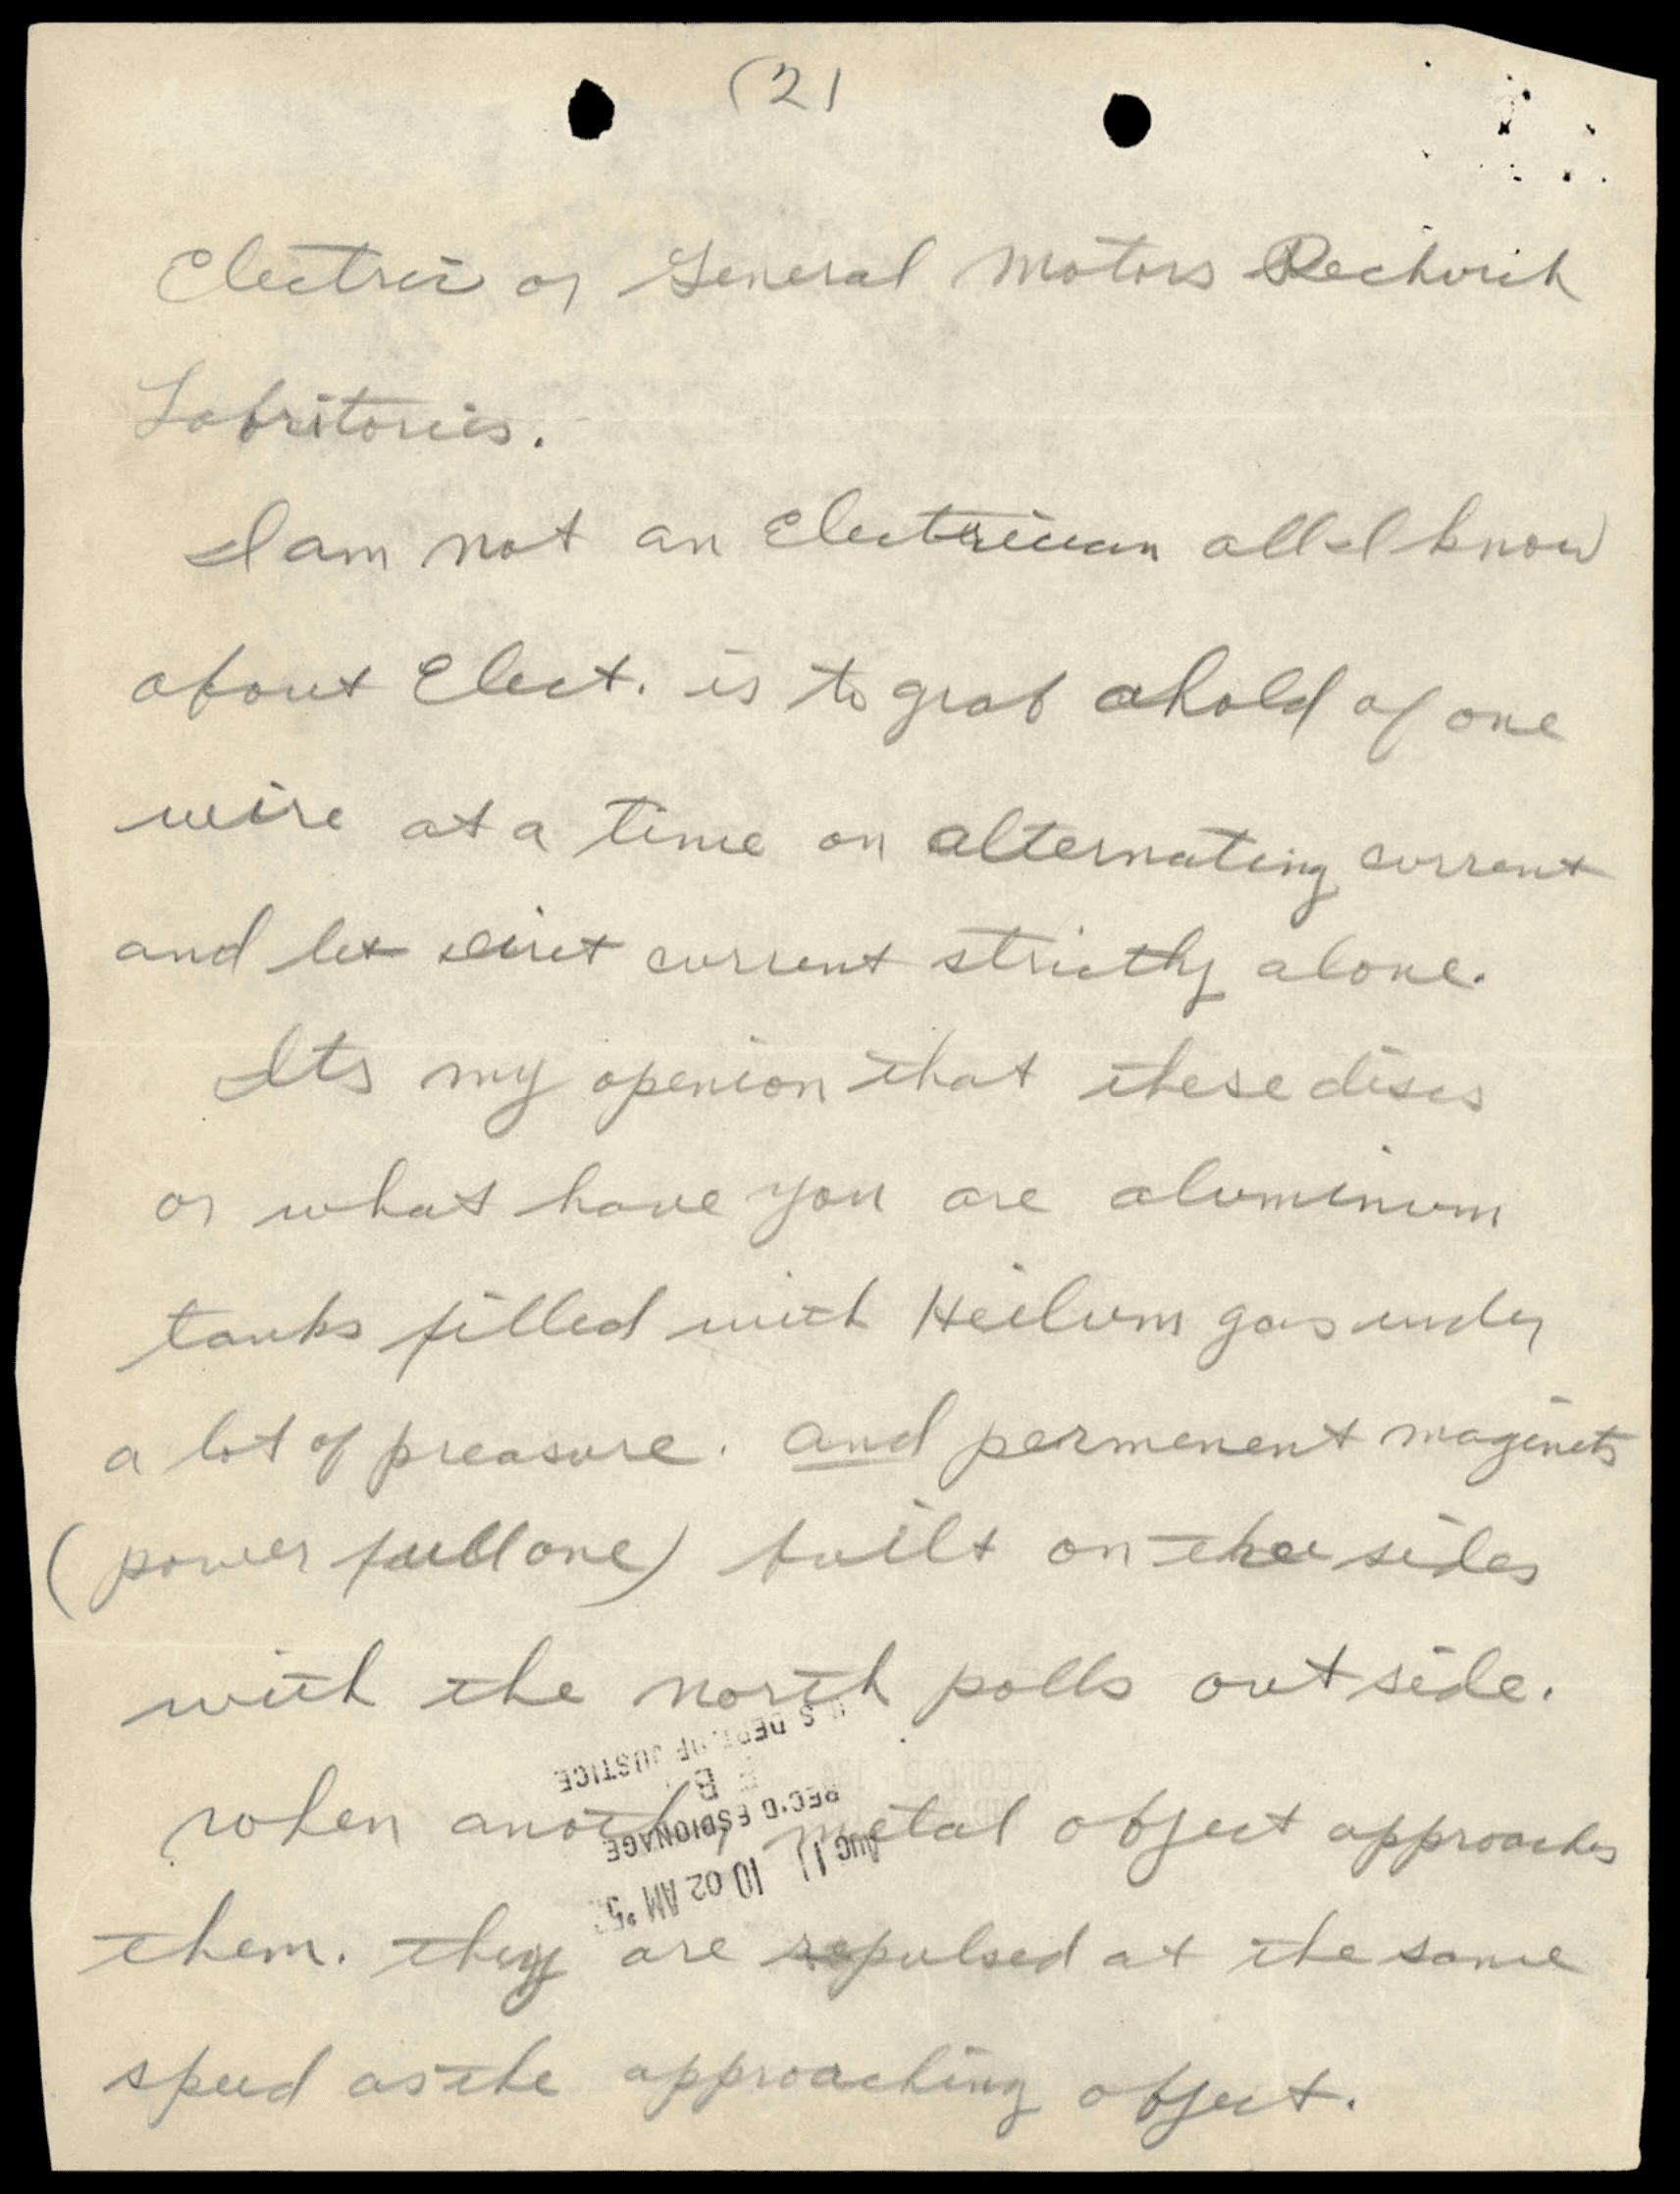 (2)
Electric or General Motors Rechurch
Labritories.
I am not an Electricican all I know
about Elect. is to grab ahold of one
wire at a time on alternating current
and let dirct current strictly alone.
Its my openion that these discs
or what have you are aluminum
tanks filled with Heilum gas under
a lot of preasure. and permenent maginets
(power full one) built on the sides
with the north polls outside.
when another metal object approaches
them. they are repulsed at the same
speed as the approaching object.
U S DEPT. OF JUSTICE
REC'D ESPIONAGE
AUG 11 10 02 AM '52